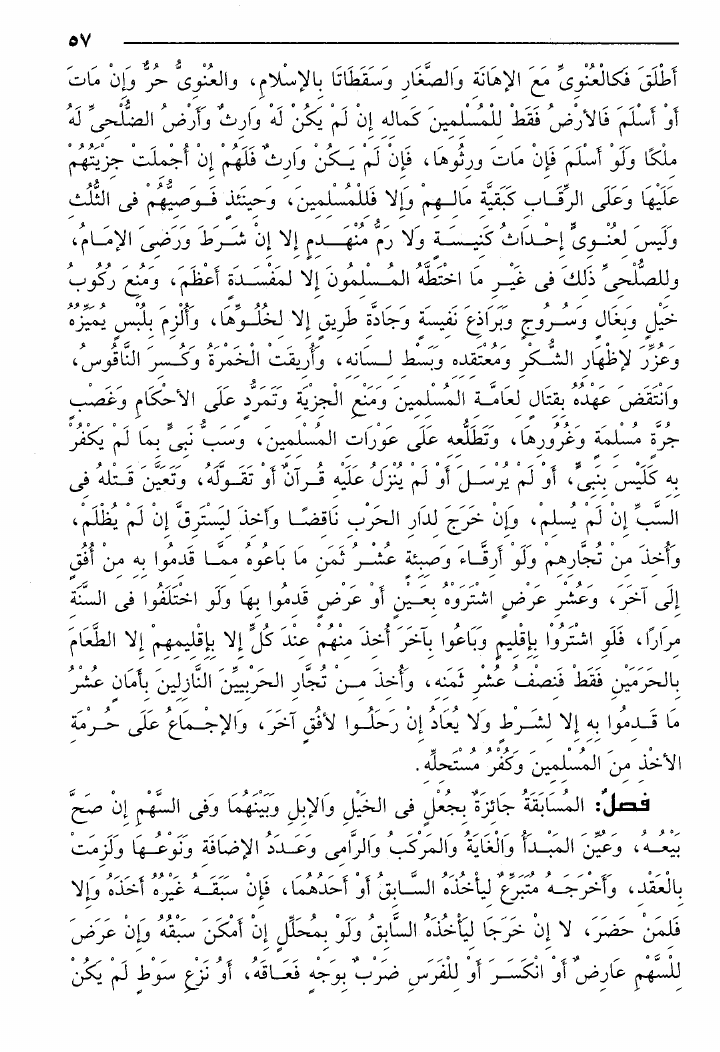 ٥٧
أَطْلَقَ فَكَالْعُنْوِىِّ مَعَ الإهَانَةِ وَالصَّغَارِ وَسَقَطَاتَا بِالإسْلَامِ، والعُنْوِىُّ حُرٌّ وَإنْ مَاتَ
أَوْ أَسْلَمَ فَالأرْضُ فَقَطْ لِلْمُسْلِمِينَ كَمالِهِ إنْ لَمْ يَكُنْ لَهُ وَارِثٌ وَأَرْضُ الصُّلْحِىِّ لَهُ
مِلْكًا وَلَوْ أَسْلَمَ فَإنْ مَاتَ ورِثُوهَا، فَإنْ لَمْ يَكُنْ وَارِثٌ فَلَهُمْ إنْ أُجْمِلَتْ جِزْيَتُهُمْ
عَلَيْهَا وَعَلَى الرِّقَابِ كَبَقِيَّةِ مَالِهِمْ وَإلا فَلِلْمُسْلِمِينَ، وَحِينَئِذٍ فَوَصِيُّهُمْ فى الثُّلُثِ
وَلَيسَ لِعُنْوِىٍّ إحْدَاثُ كَنِيسَةٍ وَلَا رَمُّ مُنْهَدِمٍ إلا إنْ شَرَطَ وَرَضِىَ الإمَامُ،
وللصُّلْحِىِّ ذَلِكَ فى غَيْرِ مَا اخْتَطَّهُ المُسْلِمُونَ إلا لمَفْسَدَةٍ أعْظَمَ، وَمُنِعَ رُكُوبَ
خَيْلٍ وَبِغَالٍ وَسُرُوجٍ وَبَرَاذِعَ نَفِيسَةٍ وَجَادَّةِ طَرِيقٍ إلا لِخُلُوِّهَا، وَأُلْزِمَ بِلُبْسٍ يُمَيِّزُهُ
وَعُزِّرَ لإظْهَارِ السُّكْرِ وَمُعْتَقَدِهِ وَبَسْطِ لِسَانِهِ، وَأُرِيقَتْ الْخَمْرَةُ وَكُسِرَ النَّاقُوسُ،
وَانْتَقَضَ عَهْدُهُ بِقِتَالٍ لِعَامَّةِ المُسْلِمِينَ وَمَنْعِ الْجِزْيَةِ وَتَمَرُّدٍ عَلَى الأحْكَامِ وَغَصْبِ
حُرَّةٍ مُسْلِمَةٍ وَغُرُورِهَا، وَتَطَلُّعِهِ عَلَى عَوْرَاتِ المُسْلِمِينَ، وَسَبُّ نَبِىٍّ بِمَا لَمْ يَكْفُرْ
بِهِ كَلَيْسَ بِنَبِىٍّ، أَوْ لَمْ يُرْسَلْ أَوْ لَمْ يُنْزَلُ عَلَيْهِ قُرآنٌ أَوْ تَقَوَّلَهُ، وَتَعَيَّنَ قَتْلُهُ فى
السَّبِّ إنْ لَمْ يُسلِمْ، وَإنْ خَرَجَ لِدَارِ الْحَرْبِ نَاقِضًا وَأُخِذَ لِيَسْتَرِقَّ إنْ لَمْ يُظْلَمْ،
وَأُخِذَ مِنْ تُجَّارِهِمْ وَلَوْ أَرِقَّاءَ وَصِبِيَةٍ عُشْرُ ثَمَنِ مَا بَاعُوهُ مِمَّا قَدِمُوا بِهِ مِنْ أُفُقٍ
إلَى آخَرَ، وَعُشْرِ عَرْضٍ اشْتَرَوْهُ بِعَيْنٍ أَوْ عَرْضٍ قَدِمُوا بِهَا وَلَو اخْتَلَفُوا فى السَّنَةِ
مِرَارًا، فَلَو اشْتَرُوْا بِإقْلِيمٍ وَبَاعُوا بِآخَرَ أُخِذَ مِنْهُمْ عِنْدَ كُلٍّ إلا بِإقْلِيمِهِمْ إلا الطَّعَامَ
بِالْحَرَمَيْنِ فَقَطْ فَنِصْفُ عُشْرِ ثَمَنِهِ، وَأُخِذَ مِنْ تُجَّارِ الحَرْبِيِّينَ النَّازِلِينَ بِأَمَانٍ عُشْرُ
مَا قَدِمُوا بِهِ إلا لشَرْطٍ وَلَا يُعَادُ إنْ رَحَلُوا لأفُقٍ آخَرَ، وَالإجْمَاعُ عَلَى حُرْمَةِ
الأخْذِ مِنَ المُسْلِمِينَ وَكُفْرُ مُسْتَحِلِّهِ.
فصلٌ: المُسَابَقَةُ جَائِزَةٌ بِجُعْلٍ فى الخَيْلِ وَالإبِلِ وَبَيْنَهُمَا وَفى السَّهْمِ إنْ صَحَّ
بَيْعُهُ، وَعُيِّنَ المَبْدَأُ وَالْغَايَةُ وَالمَرْكَبُ وَالرَّامِى وَعَدَدُ الإصَابَةِ وَنَوْعُهَا وَلَزِمَتْ
بِالْعَقْدِ، وَأَخْرَجَهُ مُتَبَرِّعٌ لِيَأْخُذَهُ السَّابِقُ أَوْ أَحَدُهُمَا، فَإنْ سَبَقَهُ غَيْرُهُ أَخَذَهُ وَإلا
فَلِمَنْ حَضَرَ، لا إنْ خَرَجَا لِيَأْخُذَهُ السَّابِقُ وَلَو بِمُحَلِّلٍ إنْ أَمْكَنَ سَبْقُهُ وَإنْ عَرَضَ
لِلسَّهْمِ عَارِضٌ أَوْ انْكَسَرَ أَوْ لِلْفَرَسِ ضَرْبٌ بِوَجْهٍ فَعَاقَهُ، أَوْ نَزْعِ سَوْطٍ لَمْ يَكُنْ